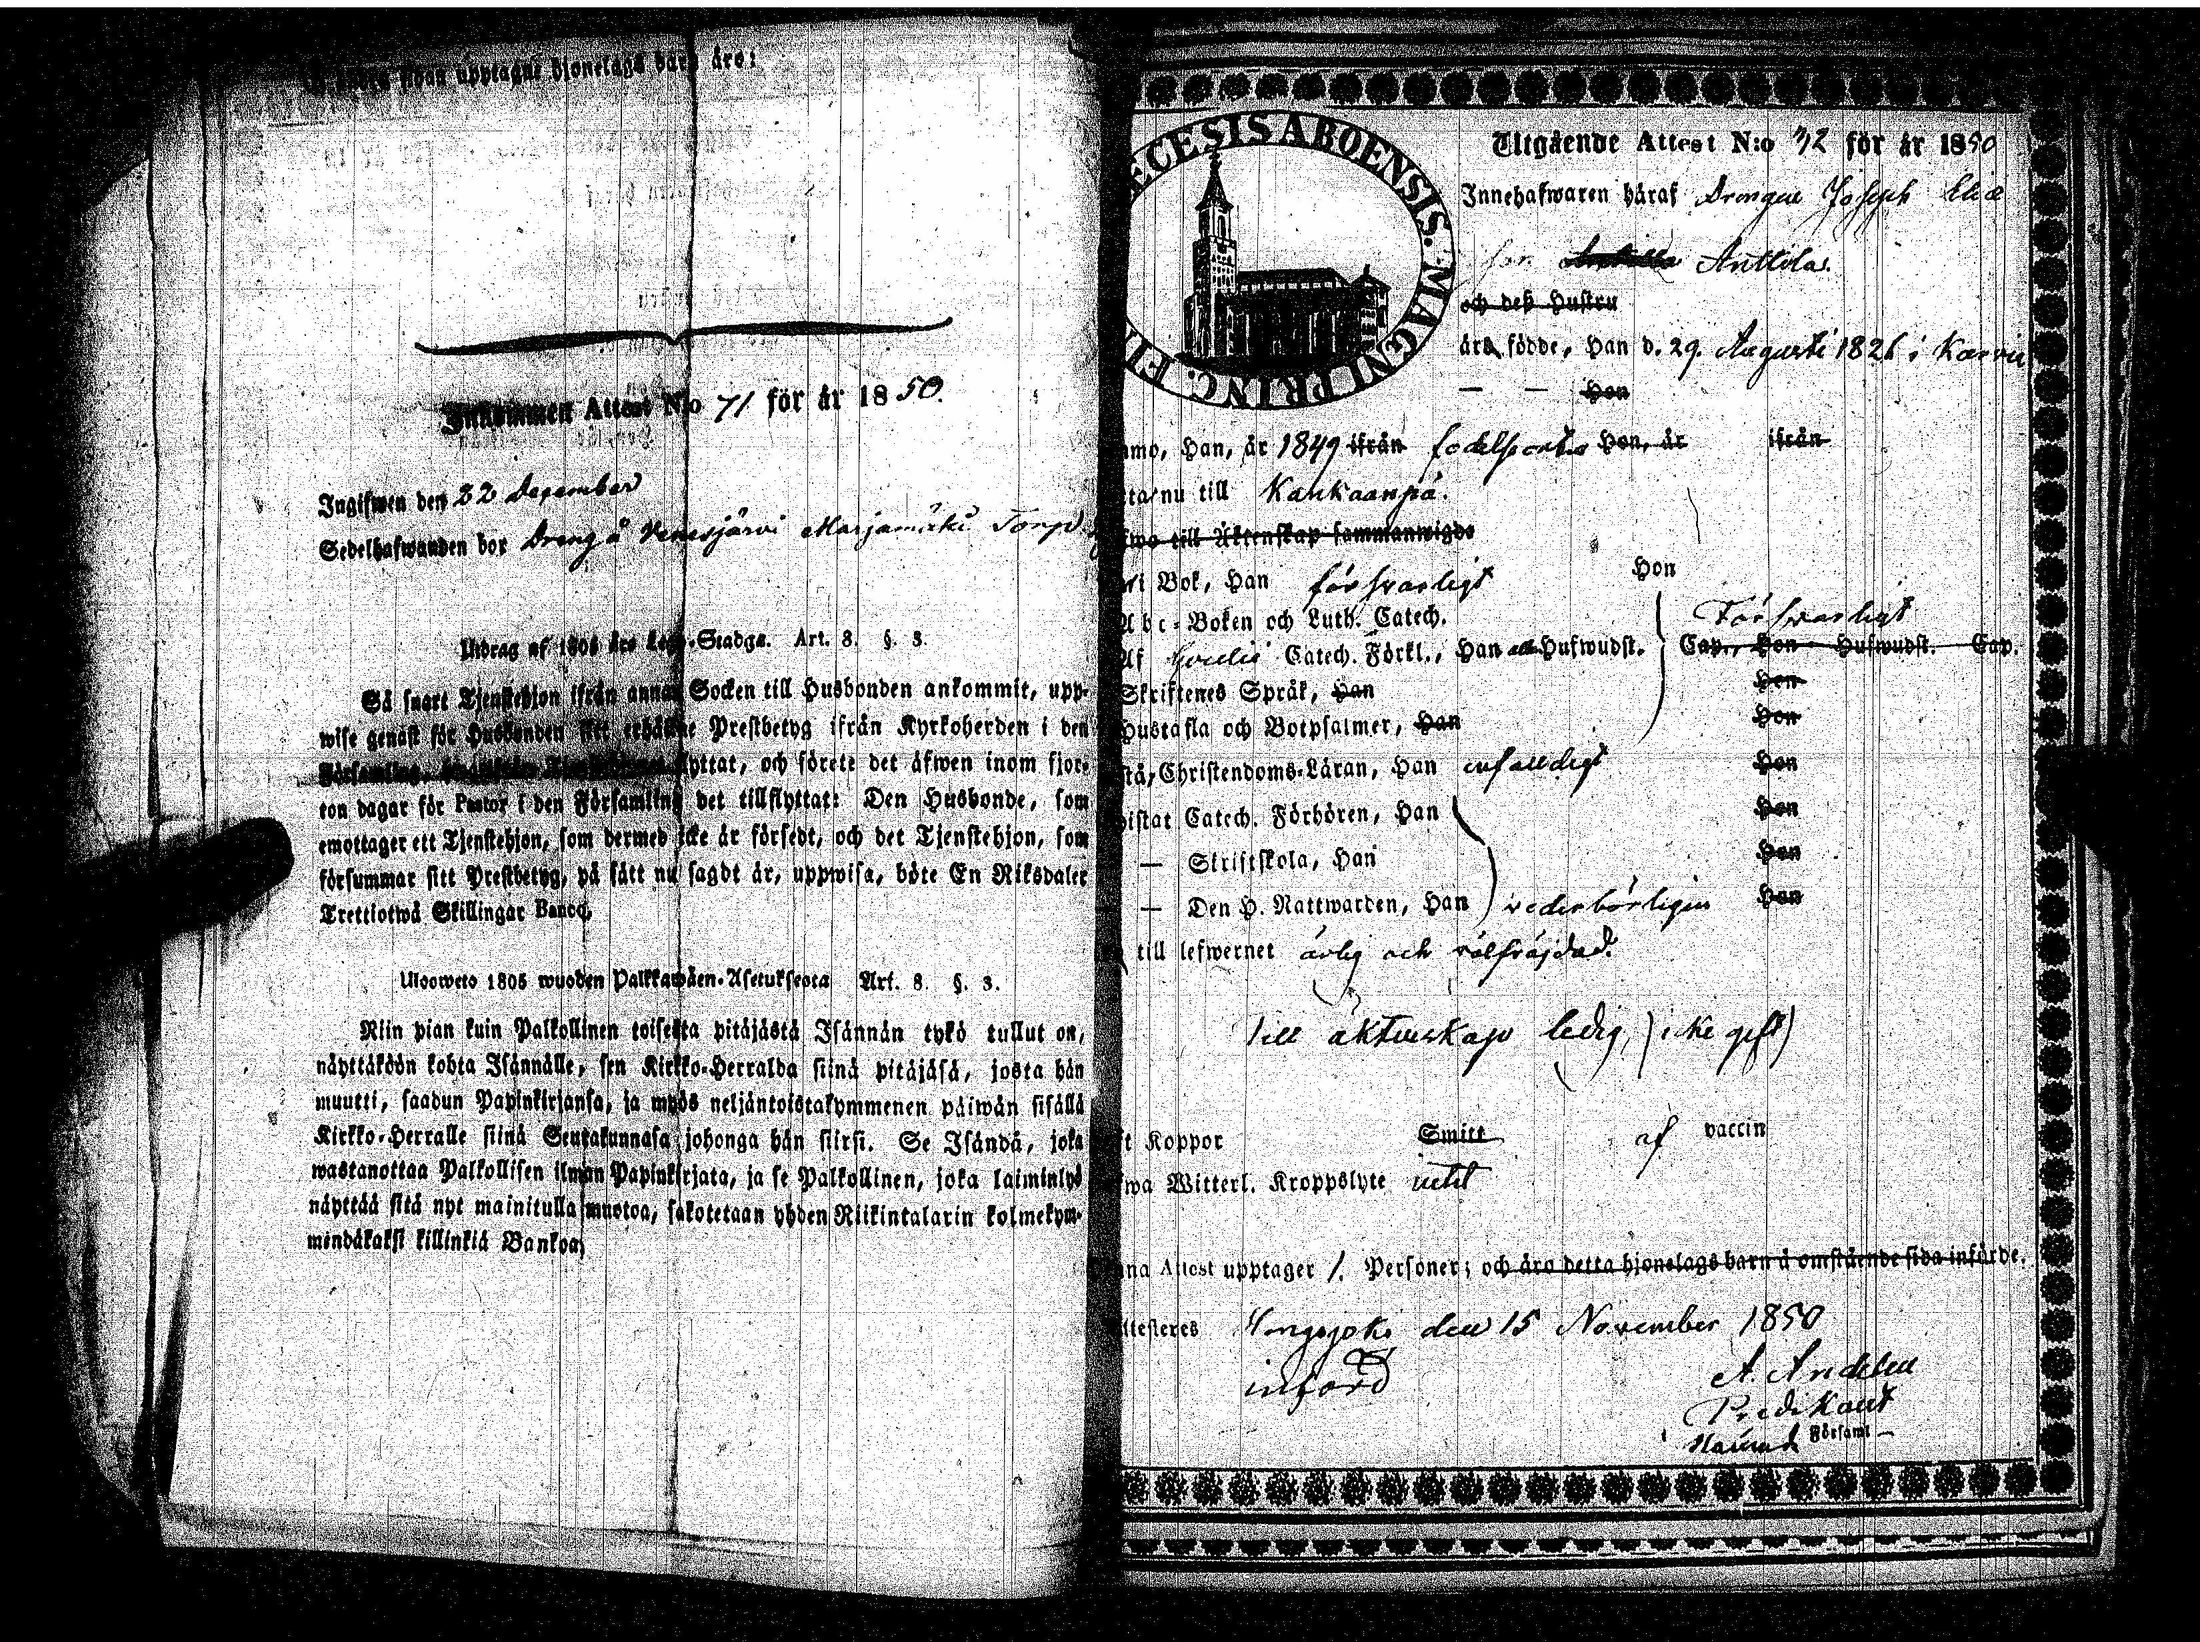 sidan upptagne hjonelags barn äro:
Inkommen Attest N:o 71 för år 1850.
Ingifwen den 22 December
Sedelhafwanden bor Dreng å Venesjärvi Marjamäki Torp
Utdrag af 1805 års Lego-Stadga. Art. 8. §. 3.
Så snart Tjenstehjon ifrån annan Socken till Husbonden ankommit, upp-
wise genast för Husbonden sitt erhållne Prestbetyg ifrån Kyrkoherden i den
Församling, flyttat, och förete det äfwen inom fjor-
ton dagar för Pastor i den Församling det tillflyttat: Den Husbonde, som
emottager ett Tjenstehjon, som dermed icke är försedt, och det Tjenstehjon, som
försummar sitt Prestbetyg, på sätt nu sagdt är, uppwisa, böte En Riksdaler
Trettiotwå Skillingar Banco.
Ulosweto 1805 wuoden Palkkawäen-Asetuksesta Art. 8. §. 3.
Niin pian kuin Palkollinen toisesta pitäjästä Isännän tykö tullut on,
näyttäköön kohta Isännälle, sen Kirkko-Herralda siinä pitäjäsä, josta hän
muutti, saadun Papinkirjansa, ja myös neljäntoistakymmenen päiwän sisällä
Kirkko-Herralle siinä Seurakunnasa johonga hän siirsi. Se Isändä, joka
wastanottaa Palkollisen ilman Papinkirjata, ja se Palkollinen, joka laiminlyö
näyttää sitä nyt mainitulla muotoa, sakotetaan yhden Riikintalarin kolmekym-
mendäkaksi killinkiä Bankoa,
ECESIS ABOENSIS. MAGNI PRINC. FI
Utgående Attest N:o 72 för år 1850
Innehafwaren häraf Drengen Joseph Eliæ
son Anttila.
och deß Hustru
äro födde, Han d. 29. Augusti 1826 i Karvia
— — Hon
mmo, Han, år 1849 ifrån födelseorten Hon, år ifrån
nu till Kankaanpä.
fwa till Äktenskap sammanwigde
i Bok, Han försvarligt Hon
Abc-Boken och Luth. Catech. Försvarligt
Af Catech. Förkl., Han Hufwudst. Cap., Hon Hufwudst. Cap.
Skriftenes Språk, Han Hon
Hustafla och Botpsalmer, Han Hon
stå, Christendoms-Läran, Han enfaldigt Hon
istat Catech. Förhören, Han Hon
— Skriftskola, Han Hon
— Den H. Nattwarden, Han vederbörligen Hon
till lefwernet ärlig och välfräjdad.
till äktenskap ledig, (icke gift)
ft Koppor Smitt af vaccin
fwa Witterl. Kroppslyte intet
na Attest upptager 1. Personer; och äro detta hjonelags barn å omstående sida införde.
ttesteres Hongojoki den 15 November 1850
införd
A. Andelin
Predikant
Församl